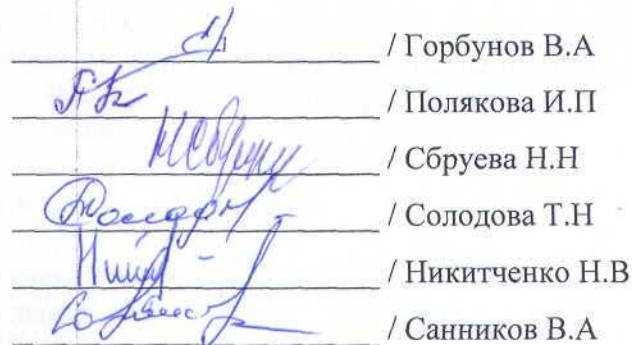 / Горбунов В.А
/ Полякова И.П
/ Сбруева Н.Н
/ Солодова Т.Н
/ Никитченко Н.В
/ Санников В.А